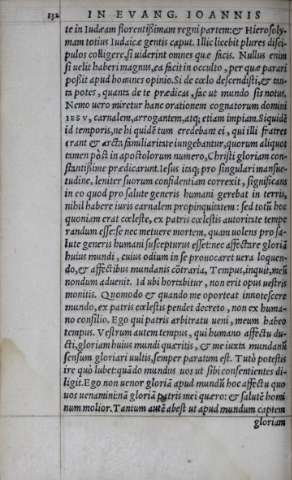 132 IN EVANG. IOANNIS
te in Iudæam florentissimam regni partem: & Hierosoly-
mam totius Iudaicæ gentis caput. Illic licebit plures disci-
pulos colligere, si uiderint omnes quæ facis. Nullus enim
si uelit haberi magnus, ea facit in occulto, per quæ parari
possit apud homines opinio. Si de cœlo descendisti, & tan-
ta potes, quanta de te prædicas, fac ut mundo sis notus.
Nemo uero miretur hanc orationem cognatorum domini
IESV, carnalem, arrogantem, atq; etiam impian. Siquidē
id temporis, ne hi quidē tum credebant ei, qui illi fratres
erant & arcta familiaritate iungebantur, quorum aliquot
tamen pòst in apostolorum numero, Christi gloriam con-
stantissime prædicarunt. Iesus itaq; pro singulari mansue-
tudine, leniter suorum confidentiam correxit, significans
in eo quod pro salute generis humani gerebat in terris,
nihil haberi iuris carnalem propinquitatem: sed totū hoc
quoniam erat cœleste, ex patris cœlestis autoritate tempe
randum esse: se nec metuere mortem, quam uolens pro sa-
lute generis humani suscepturus esset: nec affectare gloriā
huius mundi, cuius odium in se prouocaret uera loquen-
do, & affectibus mundanis cōtraria, Tempus, inquit, meū
nondum aduenit. Id ubi hortabitur, non erit opus uestris
monitis. Quomodo & quando me oporteat innotescere
mundo, ex patris cœlestis pendet decreto, non ex huma-
no consilio. Ego qui patris arbitratu ueni, meum habeo
tempus. Vestrum autem tempus, qui humano affectu du-
cti, gloriam huius mundi quæritis, & me iuxta mundanū
sensum gloriari uultis, semper paratum est. Tutò potestis
ire quò lubet: quādo mundus uos ut sibi consentientes di-
ligit. Ego non uenor gloriā apud mundū hoc affectu quo
uos uenamini: nā gloriā patris mei quæro: & salutē homi
num molior. Tantum autē abest ut apud mundum captem
gloriam